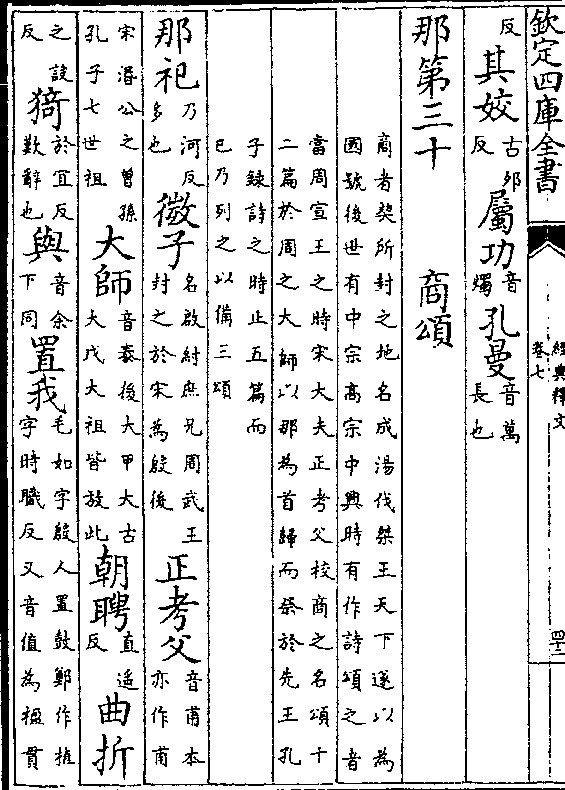 欽定四庫全書
經典釋文
卷七
四十二
反 其姣古卯反 屬功音燭 孔曼音萬長也
那第三十 商頌
商者契所封之地名成湯伐桀王天下遂以為
國號後世有中宗高宗中興時有作詩頌之音
當周宣王之時宋大夫正考父校商之名頌十
二篇於周之大師以那為首歸而祭於先王孔
子錄詩之時止五篇而
已乃列之以備三頌
那祀乃河反多也 微子名啟紂庶兄周武王封之於宋為殷後 正考父音甫本亦作甫
宋湣公之曾孫孔子七世祖 大師音泰後大甲大古大戊大祖皆放此 朝聘直遙反 曲折
之設反 猗於宜反歎辭也 與音余下同 置我毛如字殷人置鼓鄭作植字時職反又音值為楹貫